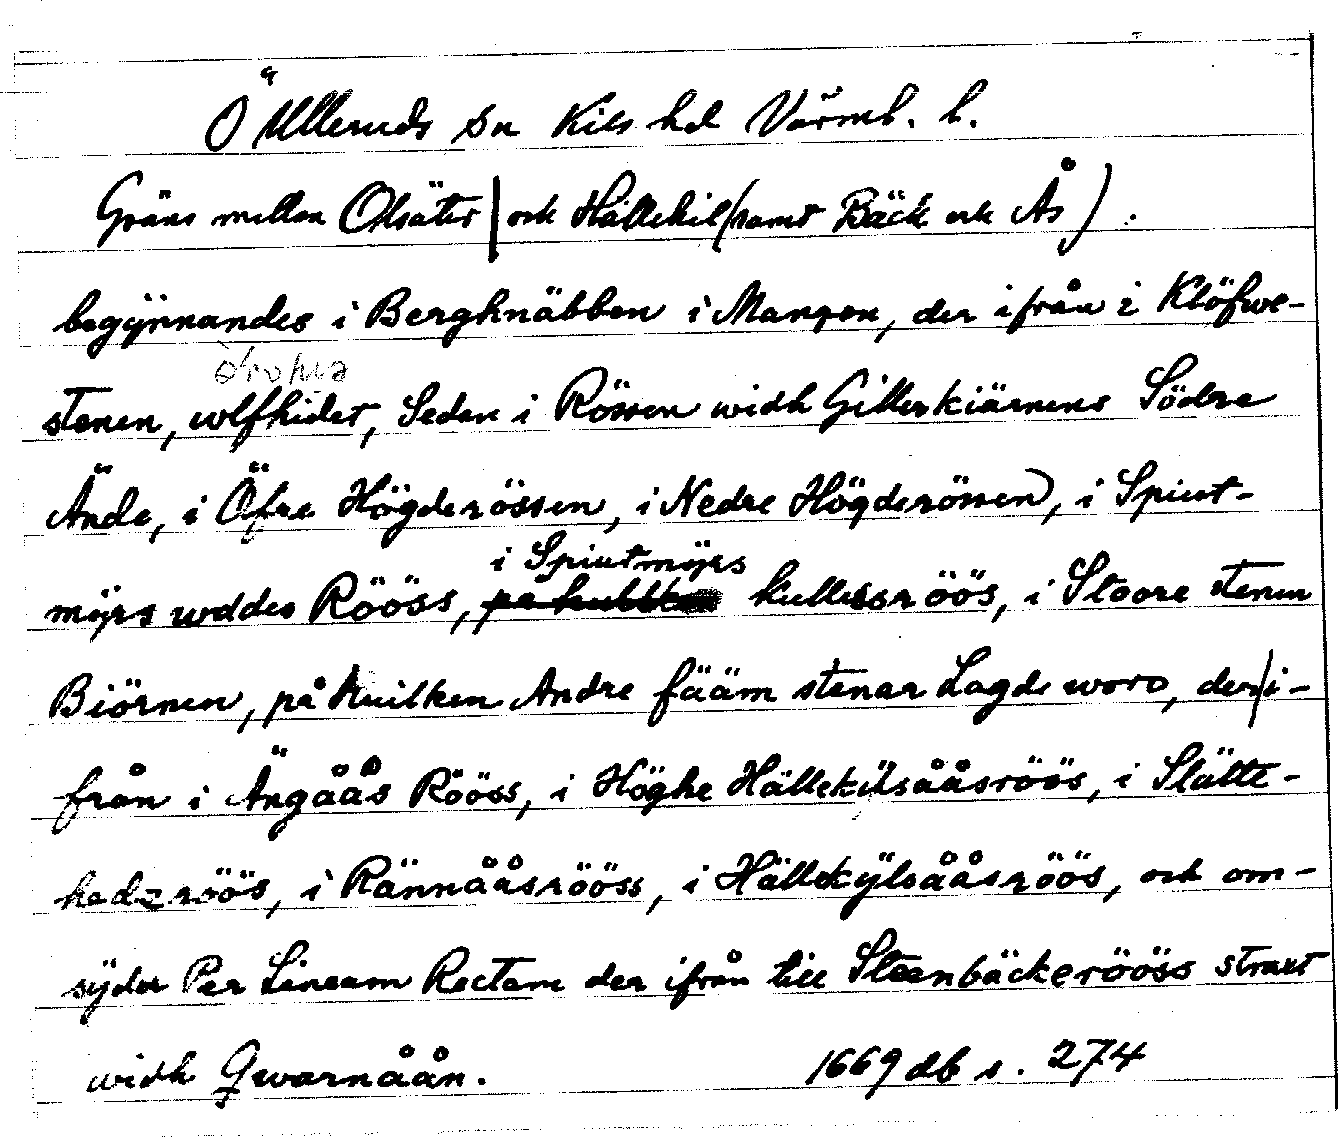 Ö Ulleruds sn Kils hd Värml. l.
Gräns mellan Olsäter | och Hällekil (samt Bäck och Ås).
begÿnnandes i Bergknäbben i Mangen, der ifrån i Klöfwe-
stenen, wlfhidet, Sedan i Rössen widh Gillerkiärnens Södre
Ände, i Öfre Högderössen, i Nedre Högderössen, i Spiut-
i Spiutmÿrs
mÿrs uddes Rööss, kullssröös, i Stoore stenen
Biörnen, på huilken Andre fääm stenar Lagde woro, der i-
från i Ängåås Rööss, i Höghe Hällekilsååsröös, i Slätte-
hedzröös, i Rännååsrööss, i Hällekÿlsååsröös, och om-
sÿder Per Lineam Rectam der ifrån till Steenbäckerööss straxt
widh Qwarnåån. 1669 db s. 274